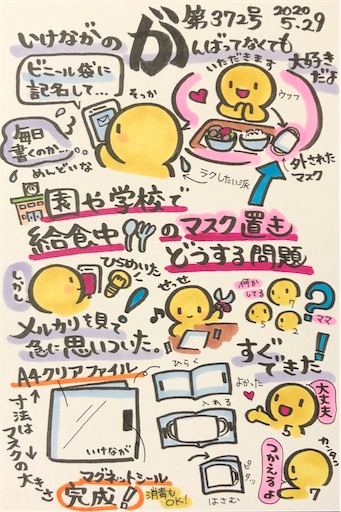 いけながの
が
んばってなくても
大好きだよ
第372号
2020
5.29
ビニール袋に
記名して…
そっか
毎日
書くのか…
めんどいな
いただきます
ウフフ
ラクしたい派
外された
マスク
園や学校で
給食中のマスク置き
どうする問題
しかし
ひらめいた
せっせ
何か
してる
ママ
7
5
2
メルカリを見て
急に思いついた。
すぐ
できた!
A4クリアファイル
寸法は
マスクの大きさ
いけなが
マグネットシール
完成!
消毒も
OK!
ひらく
入れる
はさむ
ピタッ
よかった
大丈夫
5
カンタン
つかえるよ
7